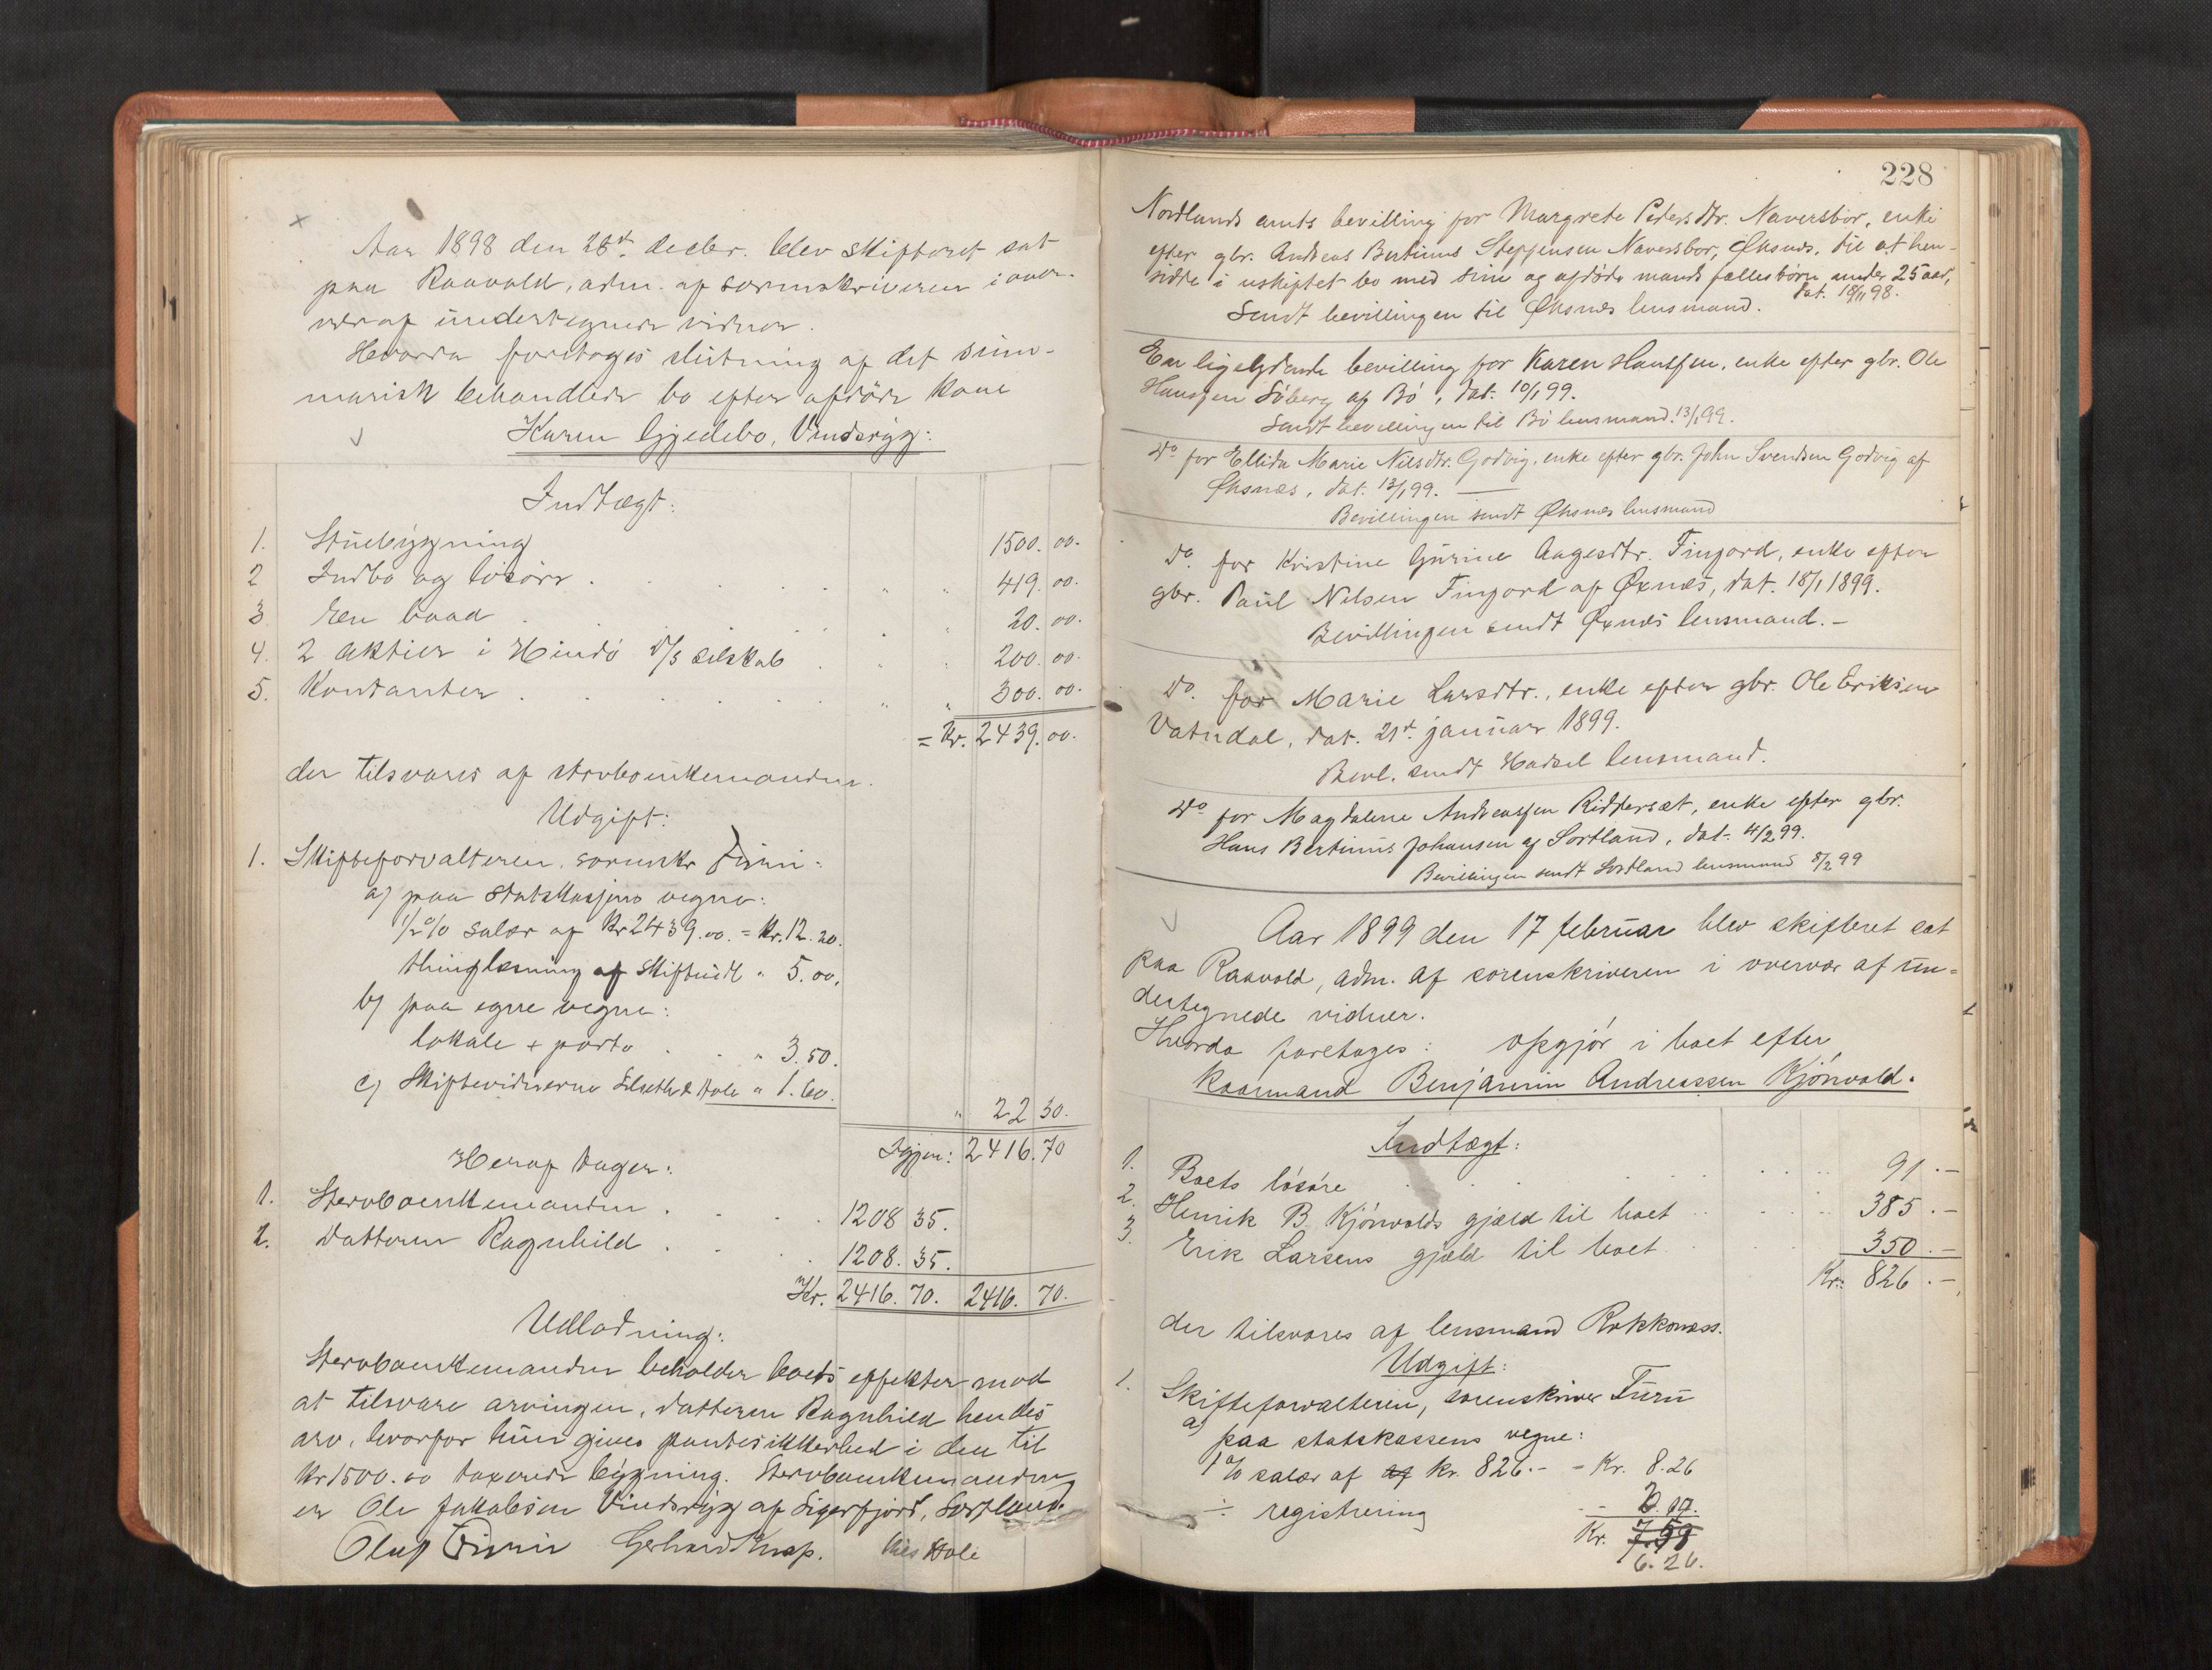 Aar 1898 den 28d. decbr. blev skifteret sat
paa Raavold, adm. af sorenskriveren i over-
vær af undertegnede vidner.
Hvorda foretoges slutning af det sum-
marisk behandlede bo efter afdöde kone
Karen Gjedebo, Vindsryg:
Indtægt:
1. Stuebygning 1500. 00.
2 Indbo og lösöre . . . . " " 419. 00.
3. Een baad . . . . . " 20. 00.
4. 2 aktier i Hindö D/S selskab . . " 200. 00.
5. Kontanter . . . . . " " 300. 00.
= Kr. 2439. 00.
der tilsvares af stervboenkemanden.
Udgift:
1. Skifteforvalteren, sorenskr Furu:
a) paa statskassens vegne:
1/2 % salær af Kr 2439.00. = Kr. 12.20.
thinglæsning af skifteudl " 5.00.
b) paa egne vegne:
lokale + porto . . " 3.50.
c) Skiftevidnerne & Hole " 1.60.
" 22 30.
Igjen: 2416. 70
Heraf tager:
1. Stervboenkemanden . . . . 1208 35.
2. Datteren Ragnhild . . . 1208. 35.
Kr. 2416. 70. 2416. 70.
Udlodning:
Stervboenkemanden beholder boets effekter mod
at tilsvare arvingen, datteren Ragnhild hendes
arv, hvorfor hun gives pantesikkerhed i den til
Kr 1500.00 taxerede bygning. Stervboenkemanden
er Ole Jakobsen Vindsryg af Sigerfjord, Sortland.
Oluf Furu Gerhard Knap. Nils Hole
228
Nordlands amts bevilling for Margrete Pedersdtr. Naversbor, enke
efter gbr. Andreas Bertinus Steffensen Naversbor, Øksnes, til at hen-
sidde i uskiftet bo med sine og afdöde mands fællesbörn under 25 aar,
dat. 18/11 98.
Sendt bevillingen til Øksnes lensmand.
En ligelydende bevilling for Karen Hanssen, enke efter gbr. Ole
Hanssen Söberg af Bö, dat. 10/1 99.
Sendt bevillingen til Bö lensmand. 13/1 99.
Do for Ellida Marie Nilsdtr. Godvig, enke efter gbr. John Svendsen Godvig af
Øksnes, dat. 13/1 99. —
Bevillingen sendt Øksnes lensmand
Do. for Kristine Gurine Aagesdtr. Finjord, enke efter
gbr. Paul Nilsen Finjord af Øxnes, dat. 18/1 1899.
Bevillingen sendt Øxnes lensmand. -
Do. for Marie Larsdtr., enke efter gbr. Ole Eriksen
Vatndal, dat. 21d. januar 1899.
Bevl. sendt Hadsel lensmand.
Do for Magdalene Andreassen Riddersæt, enke efter gbr.
Hans Bertinus Johansen af Sortland, dat. 4/2 99.
Bevillingen sendt Sortland lensmand 8/2 99
Aar 1899 den 17 februar blev skifteret sat
paa Raavold, adm. af sorenskriveren i overvær af un-
dertegnede vidner.
Hvorda foretoges: opgjör i boet efter
kaarmand Benjamin Andreassen Kjörvold.
Indtægt:
1. Boets lösöre . . . . . . . 91 . -
2. Henrik B. Kjörvolds gjæld til boet . . . . 385 . -
3. Erik Larsens gjæld til boet . . . 350 . -
Kr: 826 . -
der tilsvares af lensmand Rokkonæss.
Udgift:
1. Skifteforvalteren, sorenskriver Furu
a) paa statskassens vegne:
1 % salær af af kr. 826.- = Kr. 8.26
÷ registrering
Kr.
6.26.